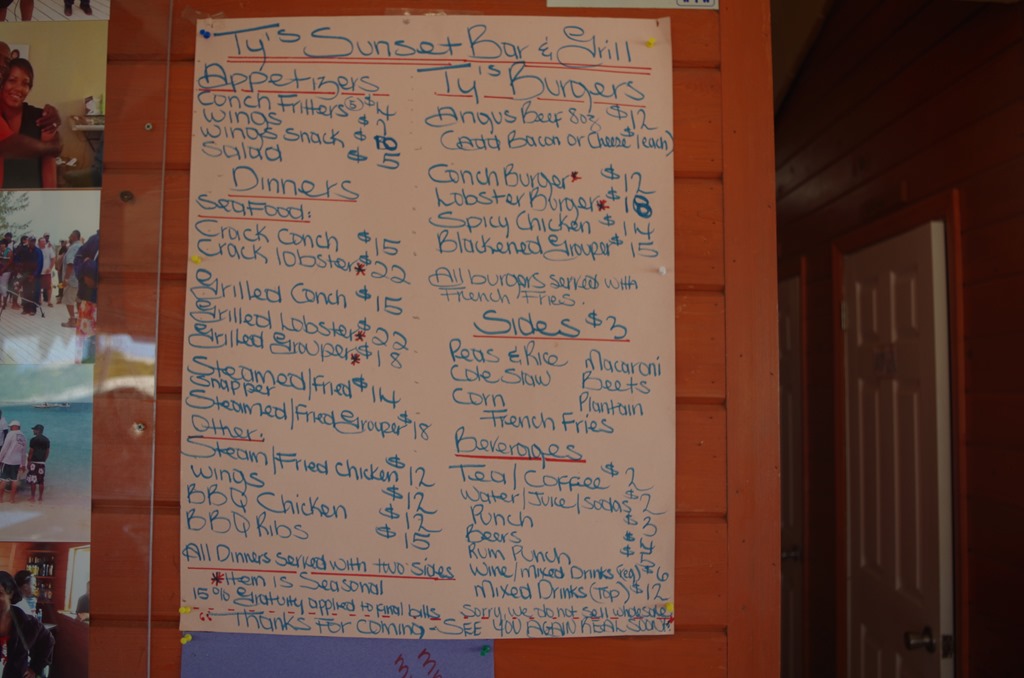 Ty's Sunset Bar & Grill
Appetizers
Conch Fritters (6) $4
Wings $
Wings Snack $
Salad $5
Dinners
Seafood:
Crack Conch $15
Crack lobster* $22
Grilled Conch $15
Grilled Lobster* $22
Grilled Grouper* $18
Steamed/Fried Snapper $14
Steamed/Fried Grouper $18
Other:
Steam/Fried Chicken $12
Wings $12
BBQ Chicken $12
BBQ Ribs $15
All Dinners served with two sides
*Item is Seasonal
15% Gratuity applied to final bills
Ty's Burgers
Angus Beef 8oz $12
(Add Bacon or Cheese $1 each)
Conch Burger* $12
Lobster Burger*
Spicy Chicken $14
Blackened Grouper $15
All burgers served with
French Fries.
Sides $3
Peas & Rice Macaroni
Cole Slaw Beets
Corn Plantain
French Fries
Beverages
Tea/Coffee $2
Water/Juice/Sodas $2
Punch $3
Beers $
Rum Punch $
Wine/Mixed Drinks $6
Mixed Drinks (Top) $12
Sorry, we do not sell wholesale
"Thanks for coming - SEE YOU AGAIN REAL SOON!"